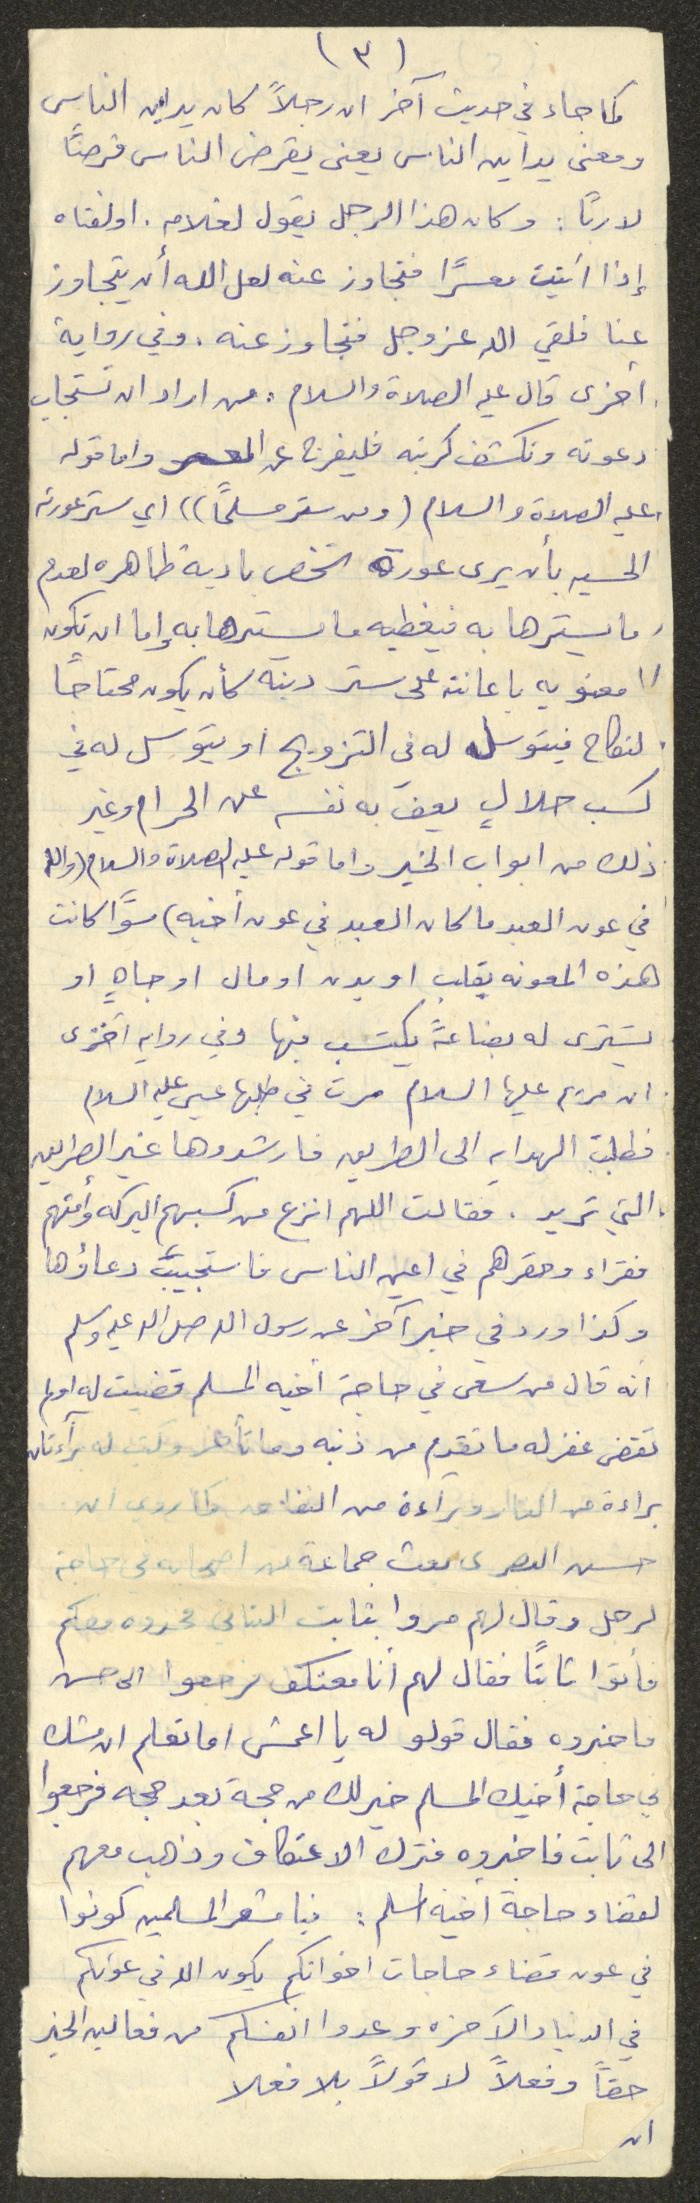 (٣)
كما جاء في حديث آخر ان رجلاً كان يداين الناس
ومعنى يداين الناس يعني يقرض الناس قرضًا
لا ربًا : وكان هذا الرجل يقول لغلامه . او لفتاه
إذا أتيت معسرًا فتجاوز عنه لعل الله أن يتجاوز
عنا فلقي الله عز وجل فتجاوز عنه . وفي رواية
أخرى قال عليه الصلاة والسلام : من اراد ان تستجاب
دعوته وتكشف كربته فليفرج عن المعسر واما قوله
عليه الصلاة والسلام (ومن ستر مسلمًا)) اي ستر عورته
الحسيه بأن يرى عورة شخص بادية ظاهره لعدم
ما يسترها به فيغطيه ما يسترها به وإما ان تكون
معنويه باعانته على ستر دينه كأن يكون محتاجًا
لنكاح فيتوسل له في التزويج او يتوسل له في
كسب حلالٍ يعف به نفسه عن الحرام وغير
ذلك من ابواب الخير واما قوله عليه الصلاة والسلام (والله
في عون العبد ما كان العبد في عون أخيه) سوًا كانت
هذه المعونه بقلب او بدن او مال او جاهٍ او
يشترى له بضاعةً يكتسب فيها وفي روايه آخرى
ان مريم عليها السلام مرت في طلبها عيسى عليه السلام
فطلبت الهدايه الى الطريق فارشدوها غير الطريق
التي تريد . فقالت اللهم انزع من كسبهم البركه وأمتهم
فقراء وحقرهم في اعين الناس فاستجيبَّ دعاؤها
وكذا ورد في خبر آخر عن رسول الله صلى الله عليه وسلم
أنه قال من سعى في حاجة أخيه المسلم قضيت له اولم
تقض غفر له ما تقدم من ذنبه وما تأخر وكتب له برآءتان
براءة من النار وبراءة من النفاق وكما روي ان
حسن البصرى بعث جماعة من اصحابه في حاجة
لرجل وقال لهم مروا بثابت البناني فخذوه معكم
فأتوا ثابتًا فقال لهم أنا معتكف فرجعوا الى حسن
فاخبروه فقال قولو له يا اعمش اما تعلم ان مشيك
في حاجة أخيك المسلم خير لك من حجة بعد حجه فرجعوا
الى ثابت فاخبروه فترك الاعتكاف وذهب معهم
لقضاء حاجة أخيه المسلم : فيا معشر المسلمين كونوا
في عون قضاء حاجات اخوانكم يكون الله في عونكم
في الدنيا والآخره وعدوا انفسكم من فعالين الخير
حقًا وفعلاً لا قولاً بلا فعلا
ان